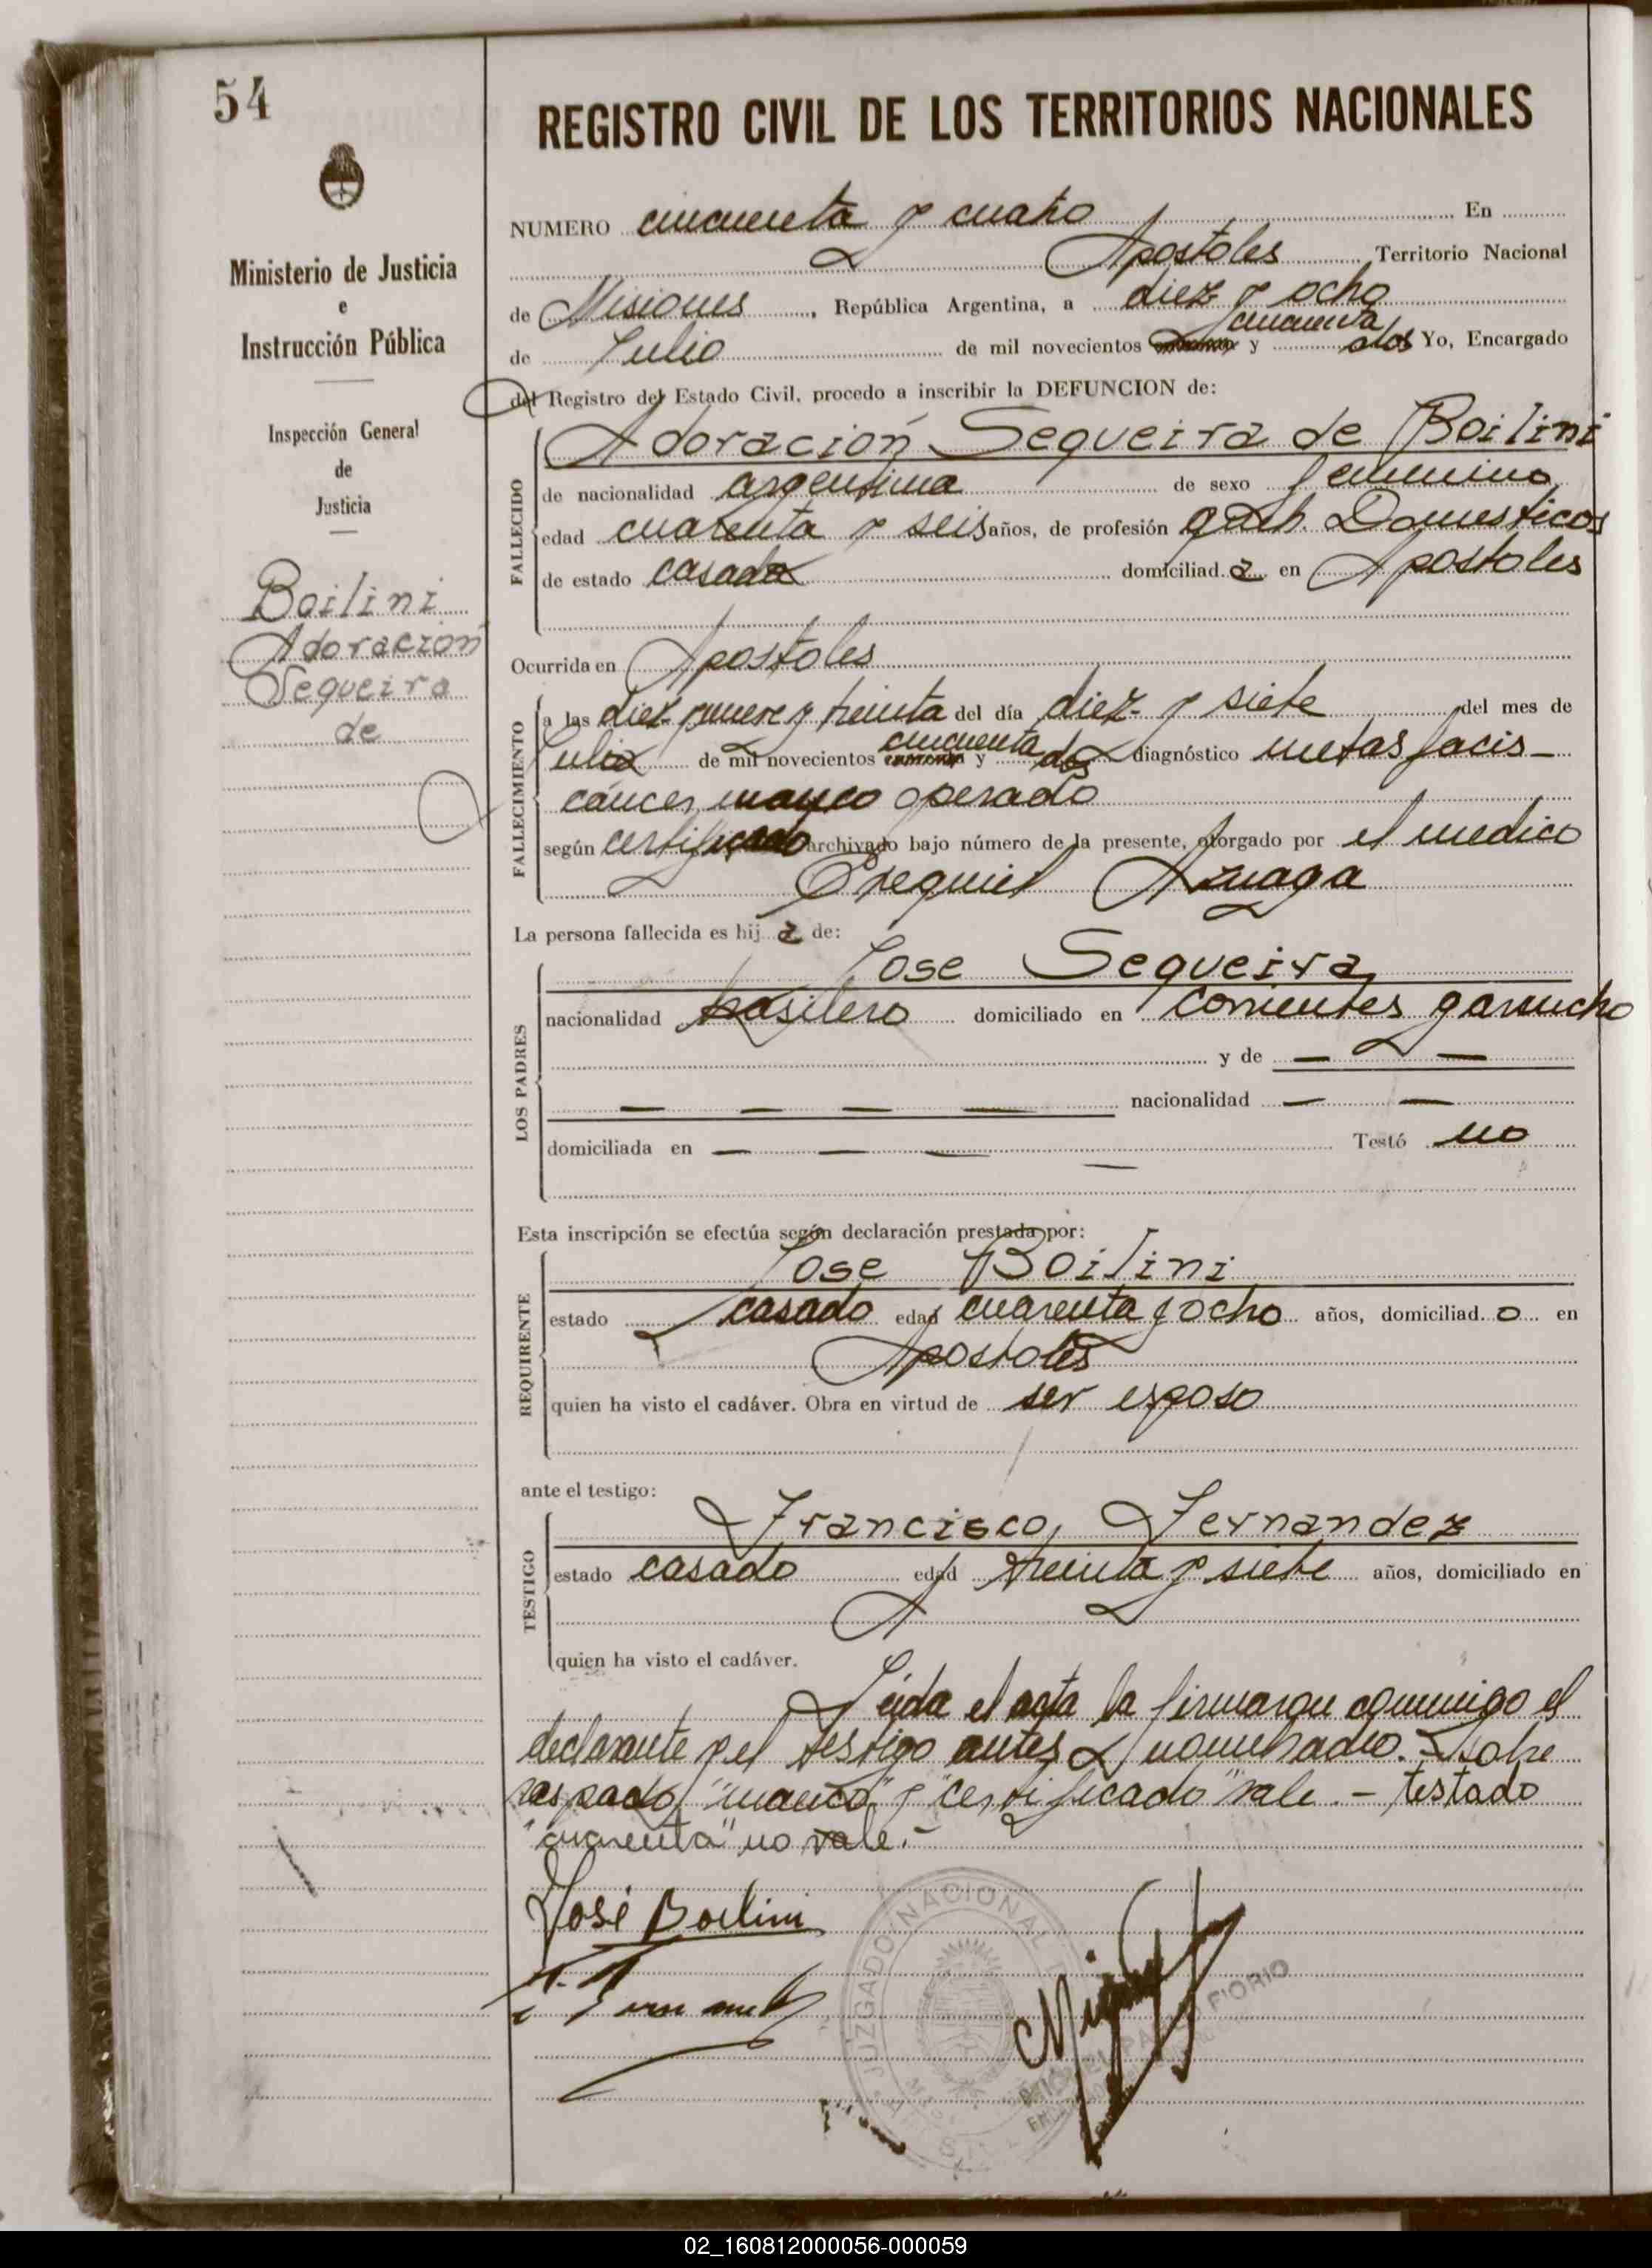 54
REGISTRO CIVIL DE LOS TERRITORIOS NACIONALES
Ministerio de Justicia
e
Instrucción Pública
Inspección General
de
Justicia
Boilini
Adoración
Sequeira
de
NUMERO cincuenta y cuatro En
Apostoles Territorio Nacional
de Misiones, República Argentina, a diez y ocho
cincuenta
de Julio de mil novecientos y dos Yo, Encargado
del Registro del Estado Civil, procedo a inscribir la DEFUNCION de:
FALLECIDO
Adoración Sequeira de Boilini
de nacionalidad argentina de sexo femenino
edad cuarenta y seis años, de profesión Domesticos
de estado casada domiciliad a en Apostoles
Ocurrida en Apostoles
FALLECIMIENTO
a las diez y nueve y treinta del día diez y siete del mes de
cincuenta
Julio de mil novecientos cuarenta y dos diagnóstico metastacis
cancer operado
según certificado archivado bajo número de la presente, otorgado por el medico
Exequiel Azuaga
La persona fallecida es hij a de:
LOS PADRES
Jose Sequeira
nacionalidad brasilero domiciliado en Corrientes garrucho
y de — —
— — — — nacionalidad — —
domiciliada en — — — — Testó no
Esta inscripción se efectúa según declaración prestada por:
REQUIRENTE
Jose Boilini
estado casado edad cuarenta y ocho años, domiciliad o en
Apostoles
quien ha visto el cadáver. Obra en virtud de ser esposo
ante el testigo:
TESTIGO
Francisco Fernandez
estado casado edad treinta y siete años, domiciliado en
quien ha visto el cadáver.
Leida el acta la firmaron conmigo el
declarante y el testigo antes nombrado. Sobre
raspado y "certificado" vale. — testado
"cuarenta" no vale. —
José Boilini
JUZGADO NACIONAL DE
FIORIO
02_160812000056-000059